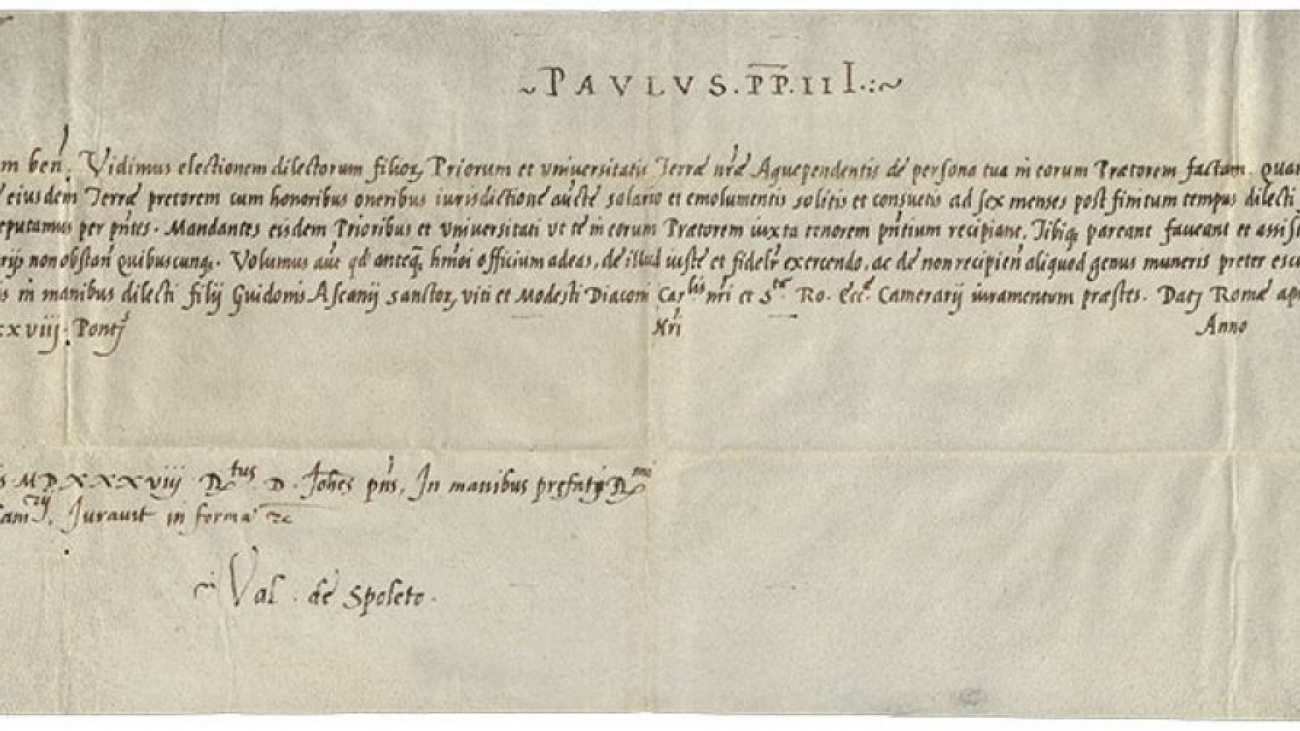 ~ PAVLVS. PP. III .:~
m ben̄. Vidimus electionem dilectorum filioꝝ Priorum et vniuersitatis Terræ nr̄æ Aquependentis de persona tua in eorum Pretorem factam. quam
eiusdem Terræ pretorem cum honoribus oneribus iurisdictione aucte salario et emolumentis solitis et consuetis ad sex menses post finitum tempus dilecti
eputamus per pn̄tes. Mandantes eisdem Prioribus et Vniuersitati ut te in eorum Prætorem iuxta tenorem pn̄tium recipiant, Tibiqꝫ pareant faueant et assis
rijs non obstan̄ quibuscunqꝫ. Volumus aūt qd anteqꝫ hm̄oi officium adeas, de illud iuste et fidelr̄ exercendo, ac de non recipien̄ aliquod genus muneris preter escu
is in manibus dilecti filij Guidonis Ascanij sanctoꝝ viti et Modesti Diaconi Carlis nr̄i et Ste Ro. Ecce Camerarij iuramentum præstes. Datj Romæ ap
xxviij. Pontj Nr̄i Anno
s MDXXXviij Dtus D. Johes pn̄s, In manibus prefatj Dmi
Camrij. Jurauit in forma &c
Val. de Spoleto.